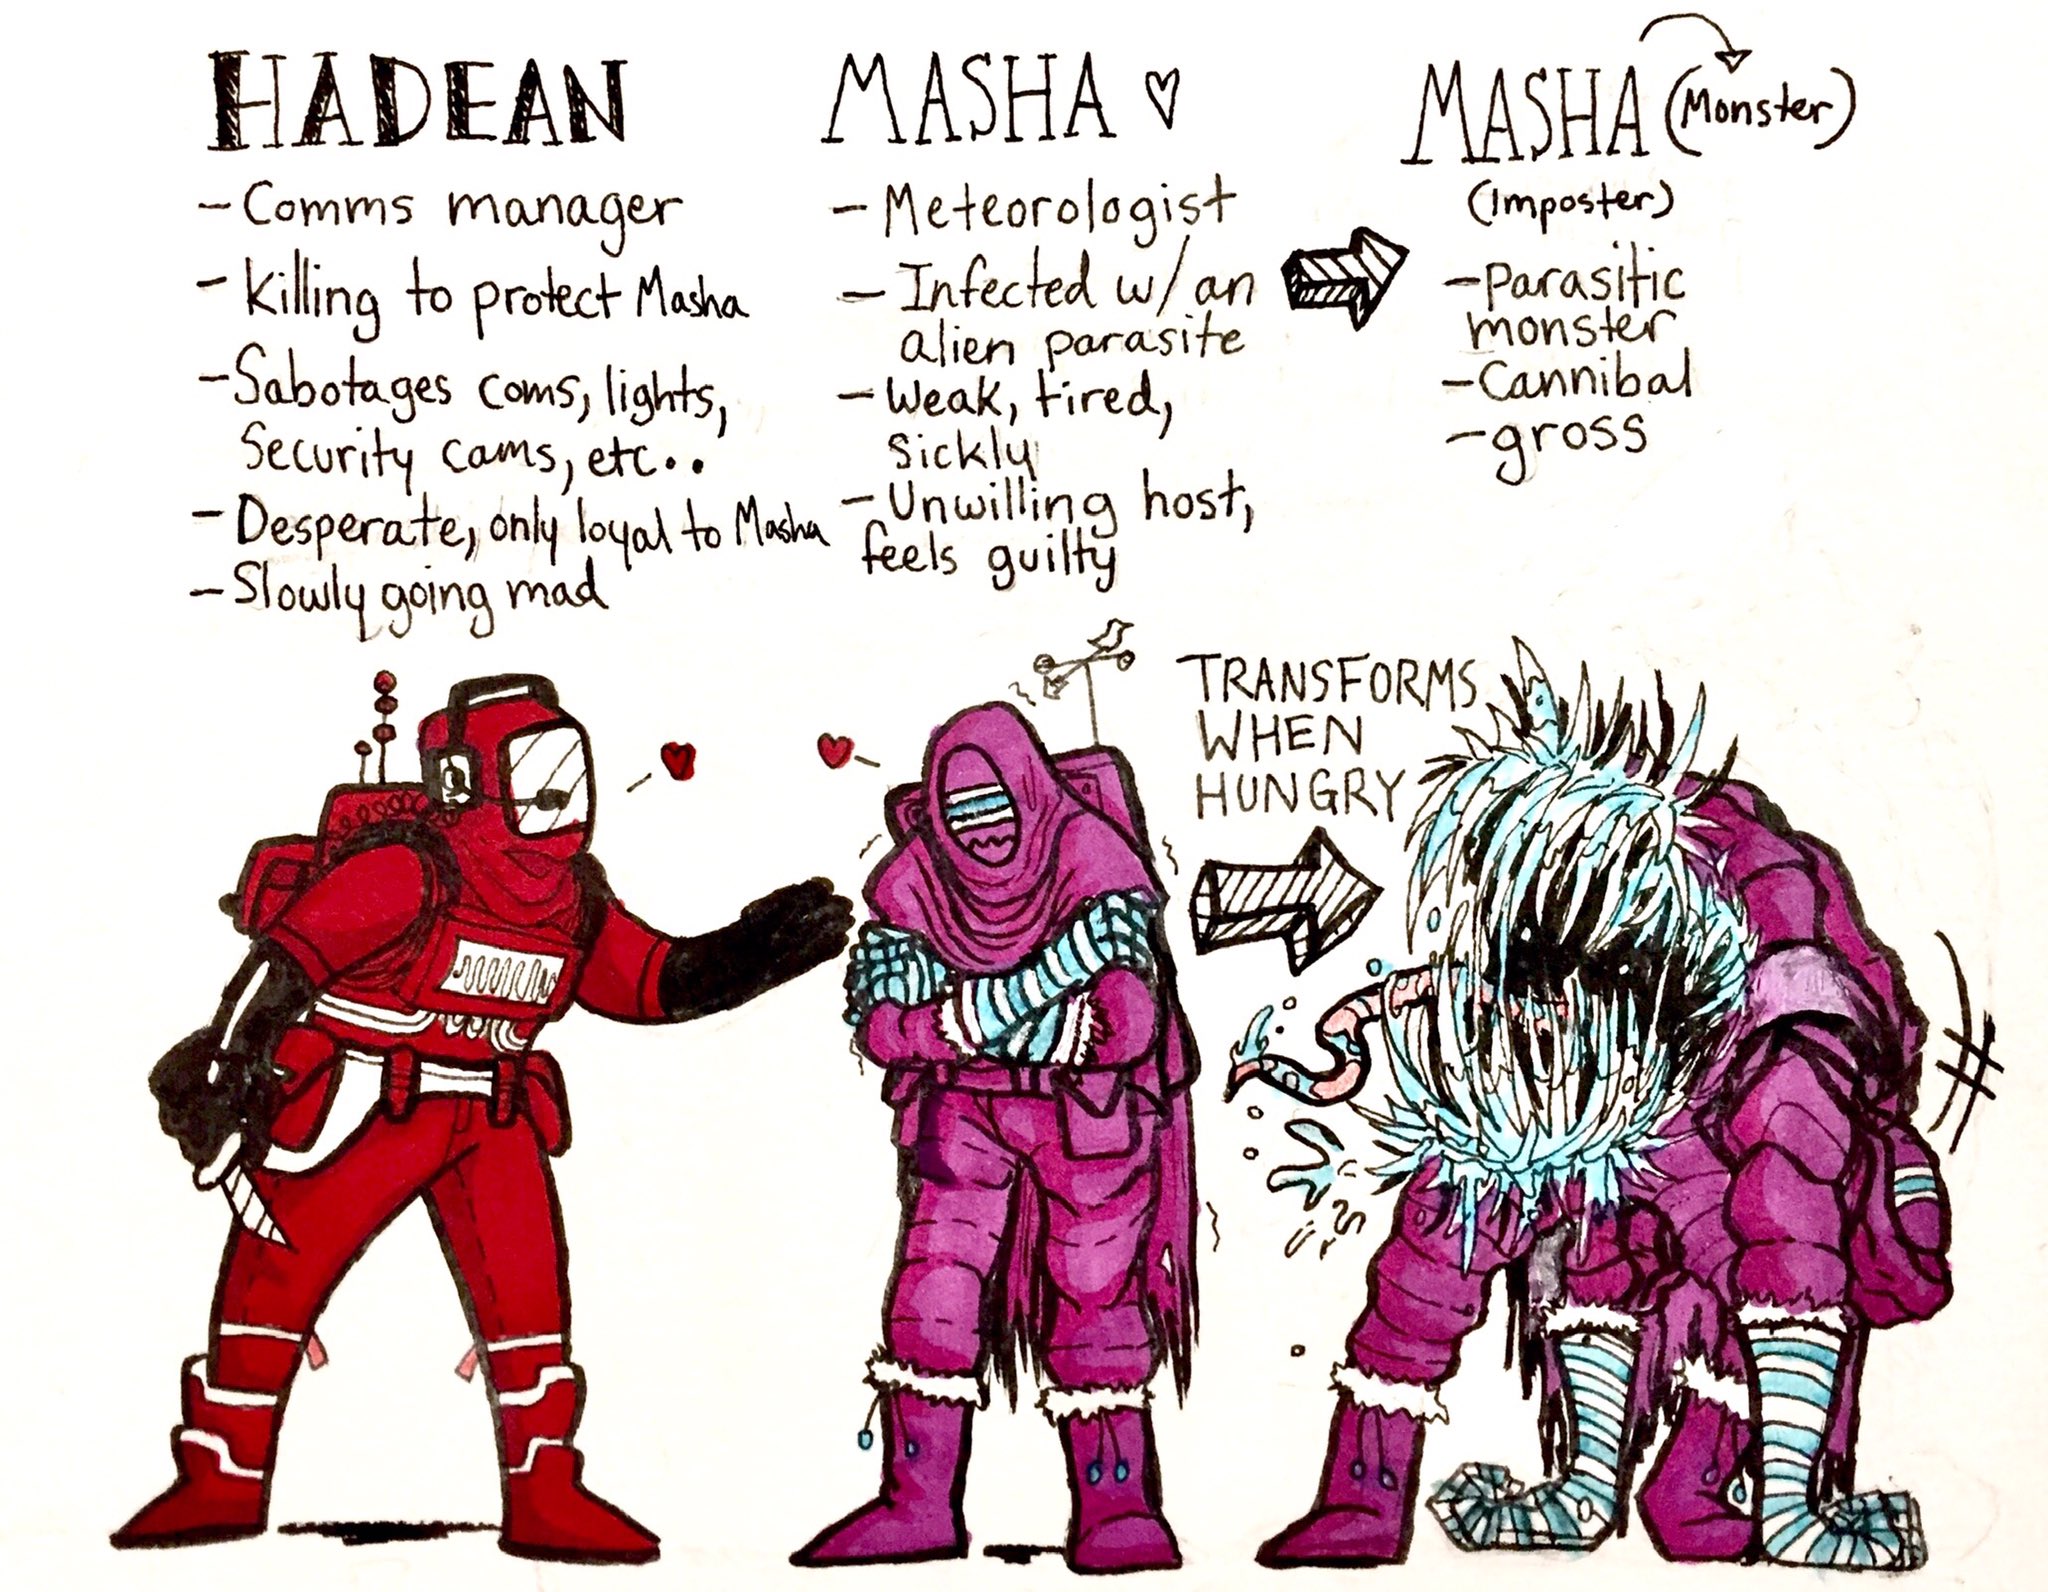 HADEAN
- Comms manager
- Killing to protect Masha
- Sabotages coms, lights,
Security cams, etc..
- Desperate, only loyal to Masha
- Slowly going mad
MASHA ♡
- Meteorologist
- Infected w/ an
alien parasite
- Weak, tired,
sickly
- Unwilling host,
feels guilty
MASHA (Monster)
(Imposter)
- Parasitic
monster
- Cannibal
- gross
TRANSFORMS
WHEN
HUNGRY